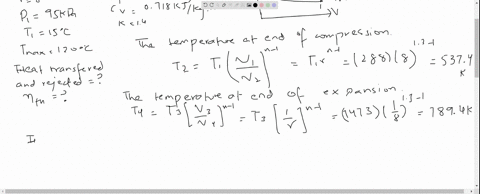 P₁ = 95kPa
T₁ = 15°C
Tmax = 1200°C
Heat transferred and rejected = ?
ηth = ?
Cv = 0.718 kJ/kg
K = 1.4
V
The temperature at end of compression.
T₂ = T₁ (V₁/V₂)^(n-1) = T₁ r^(n-1) = (288)(8)^(1.3-1) = 537.4 K
The temperature at end of expansion.
T₄ = T₃ [V₃/V₄]^(n-1) = T₃ [1/r]^(n-1) = (1473)(1/8)^(1.3-1) = 789.4K